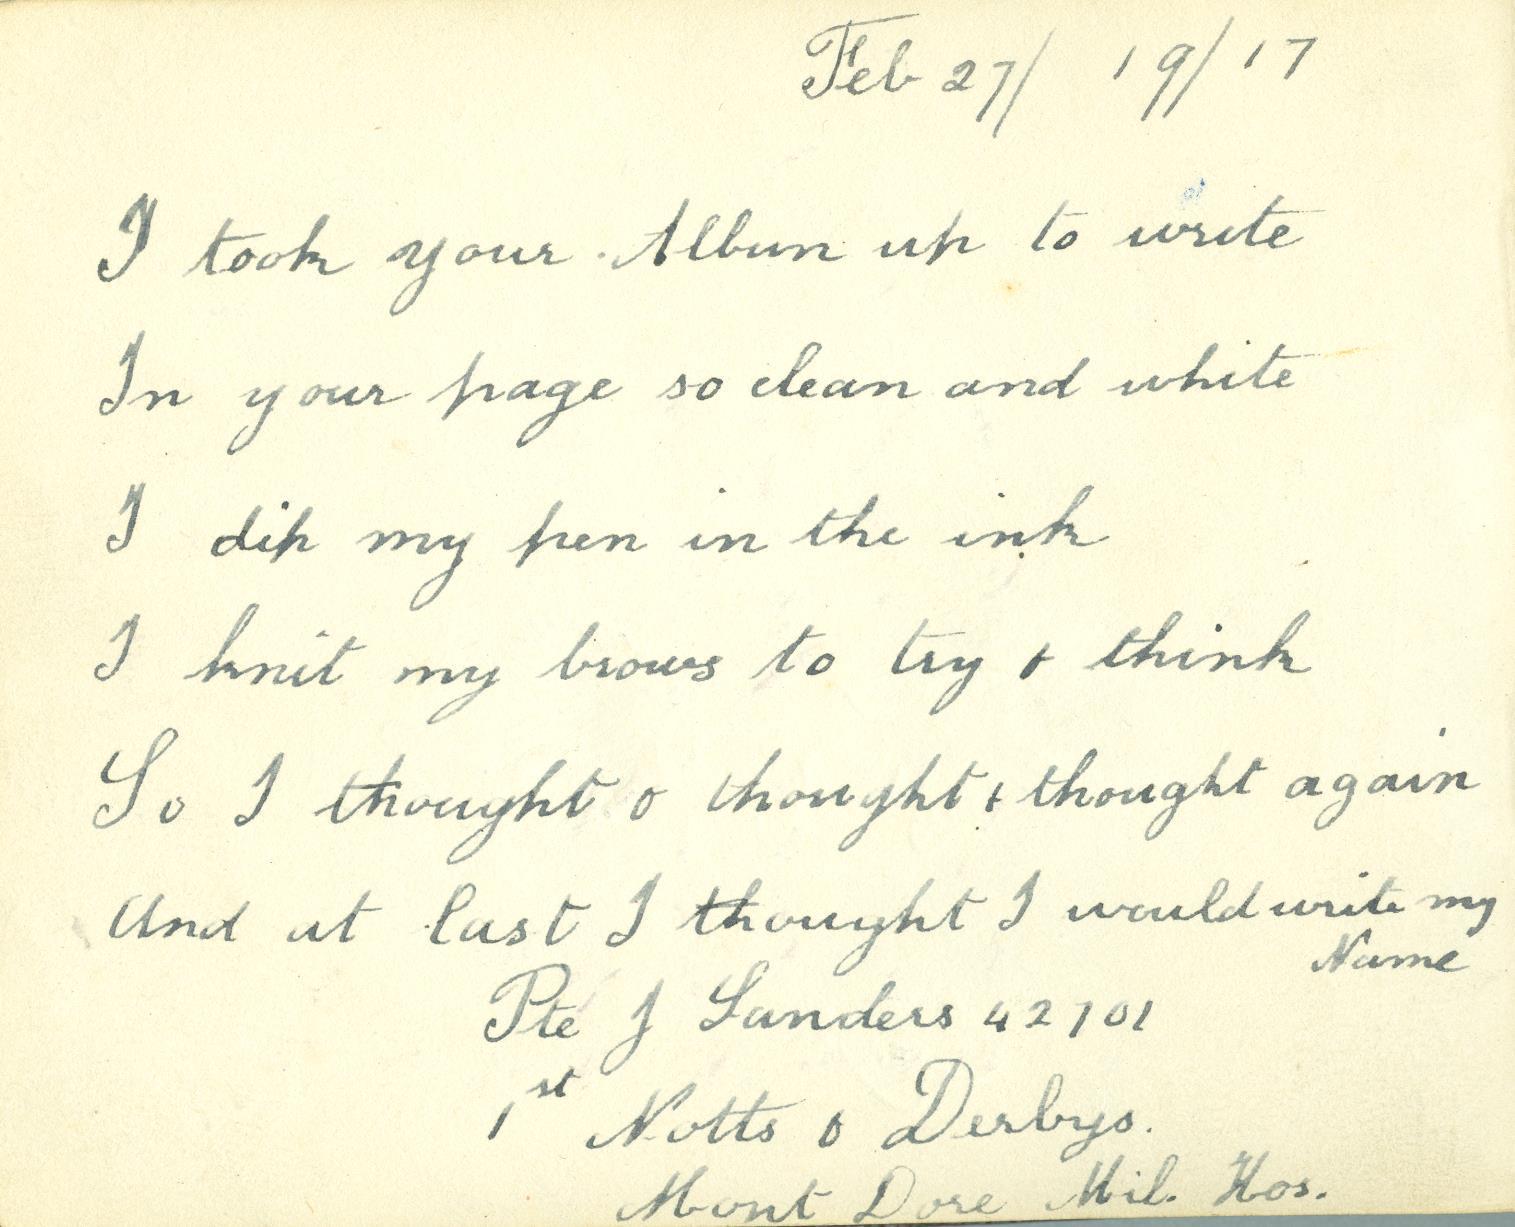 Feb 27/ 19/17
I took your Album up to write
In your page so clean and white
I dip my pen in the ink
I knit my brows to try & think
So I thought & thought & thought again
And at last I thought I would write my
Name
Pte J Sanders 42701
1st Notts & Derbys.
Mont Dore Mil. Hos.